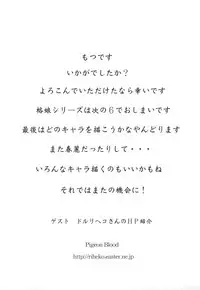 もつです
いかがでしたか？
よろこんでいただけたなら幸いです
格娘シリーズは次の６でおしまいです
最後はどのキャラを描こうかなやんどります
また春麗だったりして・・・
いろんなキャラ描くのもいいかもね
それではまたの機会に！
ゲスト　ドルリヘコさんのＨＰ紹介
Pigeon Blood